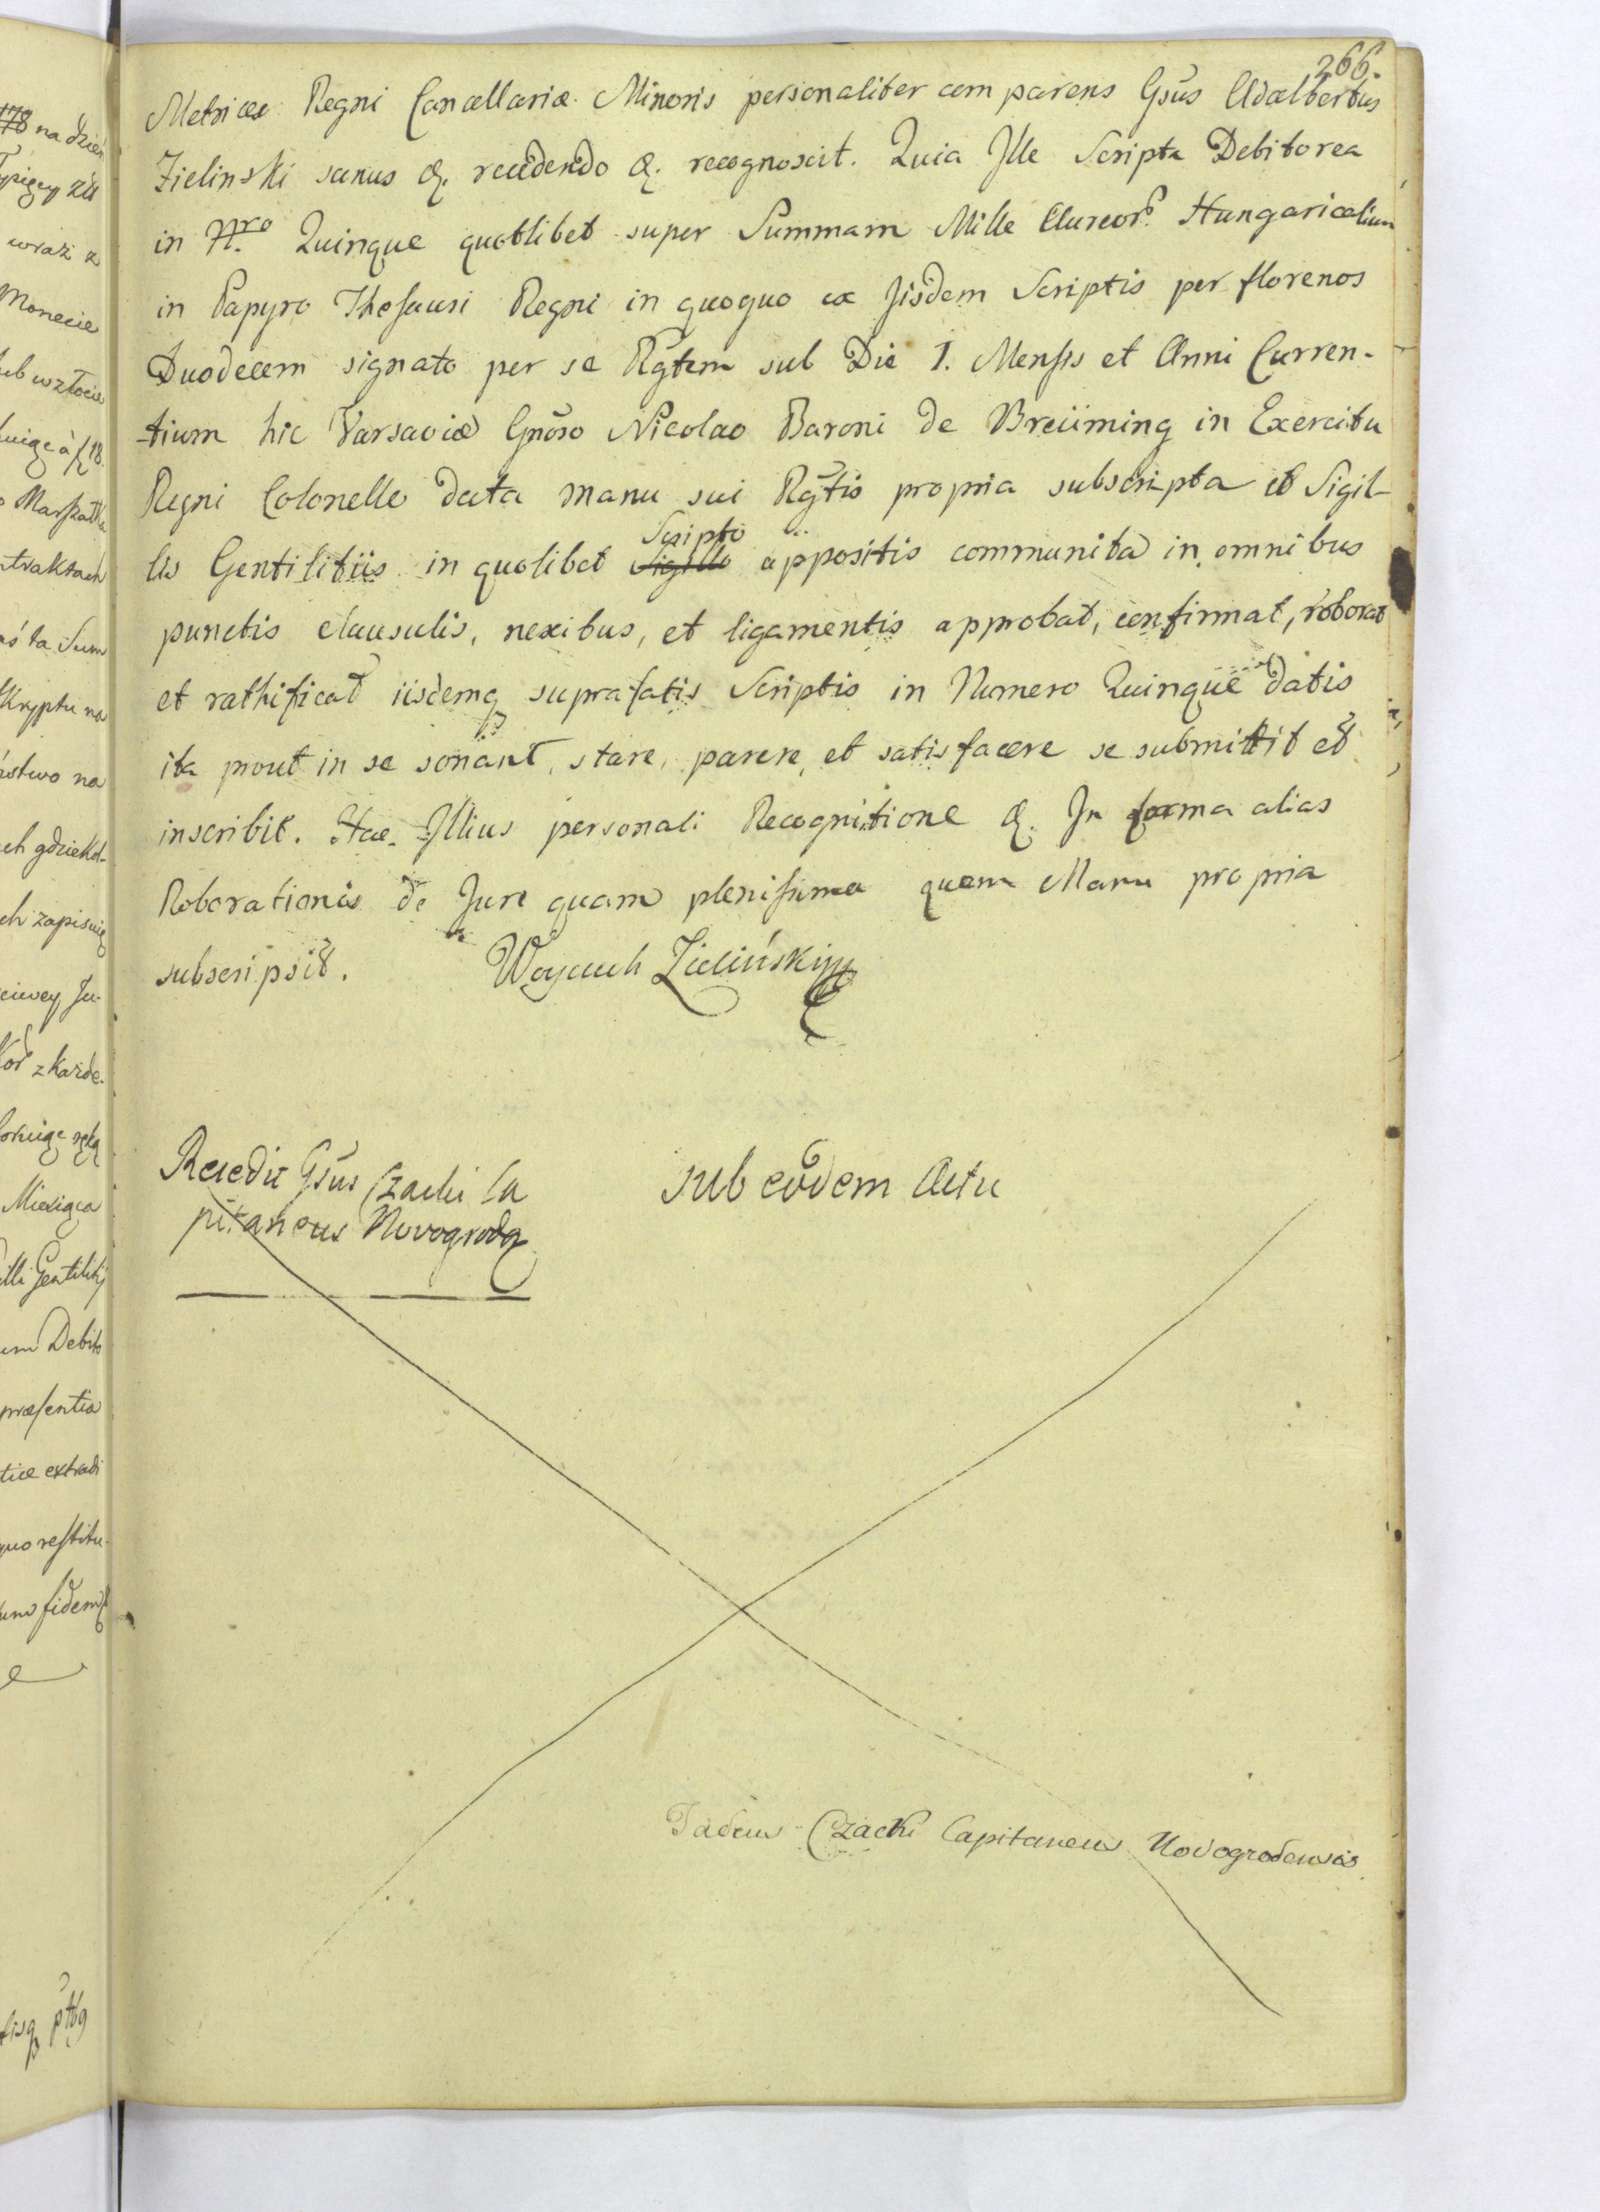 266.
Metricæ Regni Cancellariæ Minoris personaliter comparens Gsus Adalbertus
Zielinski sanus &. recedendo &. recognoscit. Quia Ille Scripta Debitorea
in Nro Quinque quotlibet super Summam Mille Aureor. Hungaricalium
in Papyro Thesauri Regni in quoquo ex Iisdem Scriptis per florenos
Duodecem signato per se Rgtem sub Die 1. Mensis et Anni Curren-
-tium hic Varsaviæ Gnoso Nicolao Baroni de Breüming in Exercitu
Regni Colonello data manu sui Rgtis propria subscripta et Sigil-
lis Gentilitiis in quolibet Scripto appositis communita in omnibus
punctis clausulis, nexibus, et ligamentis approbat, confirmat, roborat
et rathificat iisdemq suprafatis Scriptis in Numero Quinque datis
ita prout in se sonant, stare, parere, et satisfacere se submittit et
inscribit. Hac Illius personali Recognitione &. In forma alias
Roborationis de Jure quam plenissima quam Manu propria
subscripsit. Woyciech Zieliński
Recedit Gsus Czacki Ca
pitaneus Novogrodq
sub eodem Actu
Tadeus Czacki Capitaneus Novogrodensis
178 na dzień
wrazi z
Monecie
Marszałka
ntraktach
Sum
Kryptu na
ństwo na
ch gdziekol-
ch zapisuię
z Karde-
Miesiąca
illi Gentilitij
um Debito
præsentia
tiæ extradi
quo restitu-
um fidemq